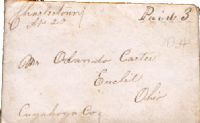 Charlestown
Paid 3
Mr Orlando Carter
Euclid
Ohio
Cuyahoga Co